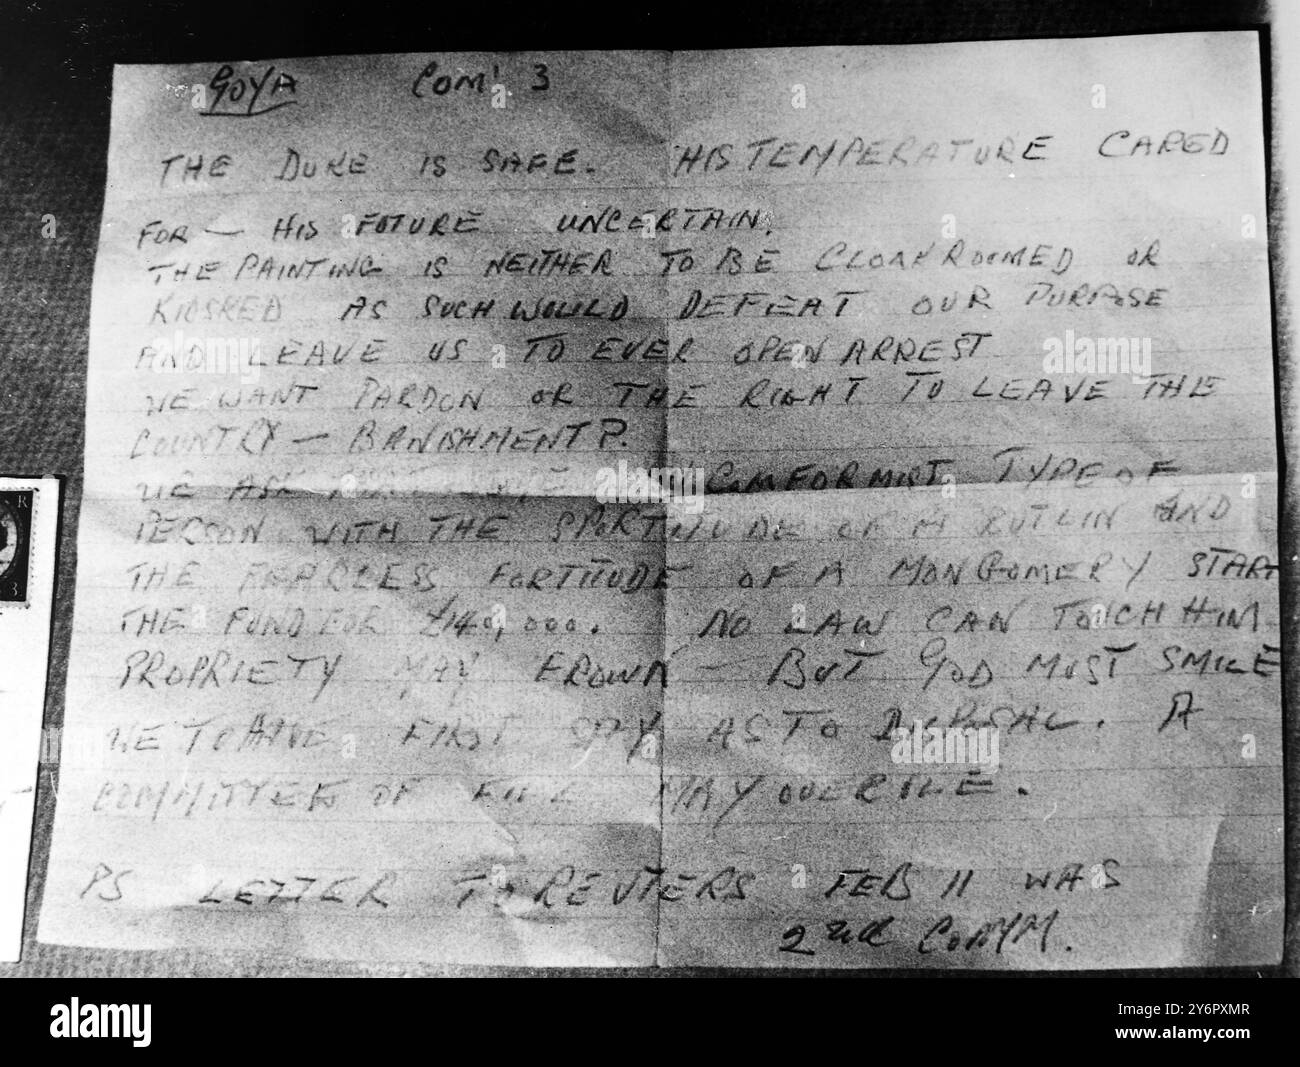 GOYA COM' 3
THE DUKE IS SAFE. HIS TEMPERATURE CARED
FOR — HIS FUTURE UNCERTAIN.
THE PAINTING IS NEITHER TO BE CLOAKROOMED OR
KIOSKED AS SUCH WOULD DEFEAT OUR PURPOSE
AND LEAVE US TO EVER OPEN ARREST
WE WANT PARDON OR THE RIGHT TO LEAVE THE
COUNTRY — BANISHMENT?.
WE ASK TYPE OF
PERSON WITH THE OF A AND
THE FEARLESS FORTITUDE OF A MONTGOMERY START
THE FUND FOR £140,000. NO LAW CAN TOUCH HIM
PROPRIETY MAY FROWN — BUT GOD MUST SMILE
WE TO HAVE FIRST SAY AS TO DISPOSAL. A
COMMITTEE OF MAY OVERULE.
PS LETTER TO REUTERS FEB 11 WAS
2nd COMM.
R
3
alamy
Image ID: 2Y6PXMR
www.alamy.com